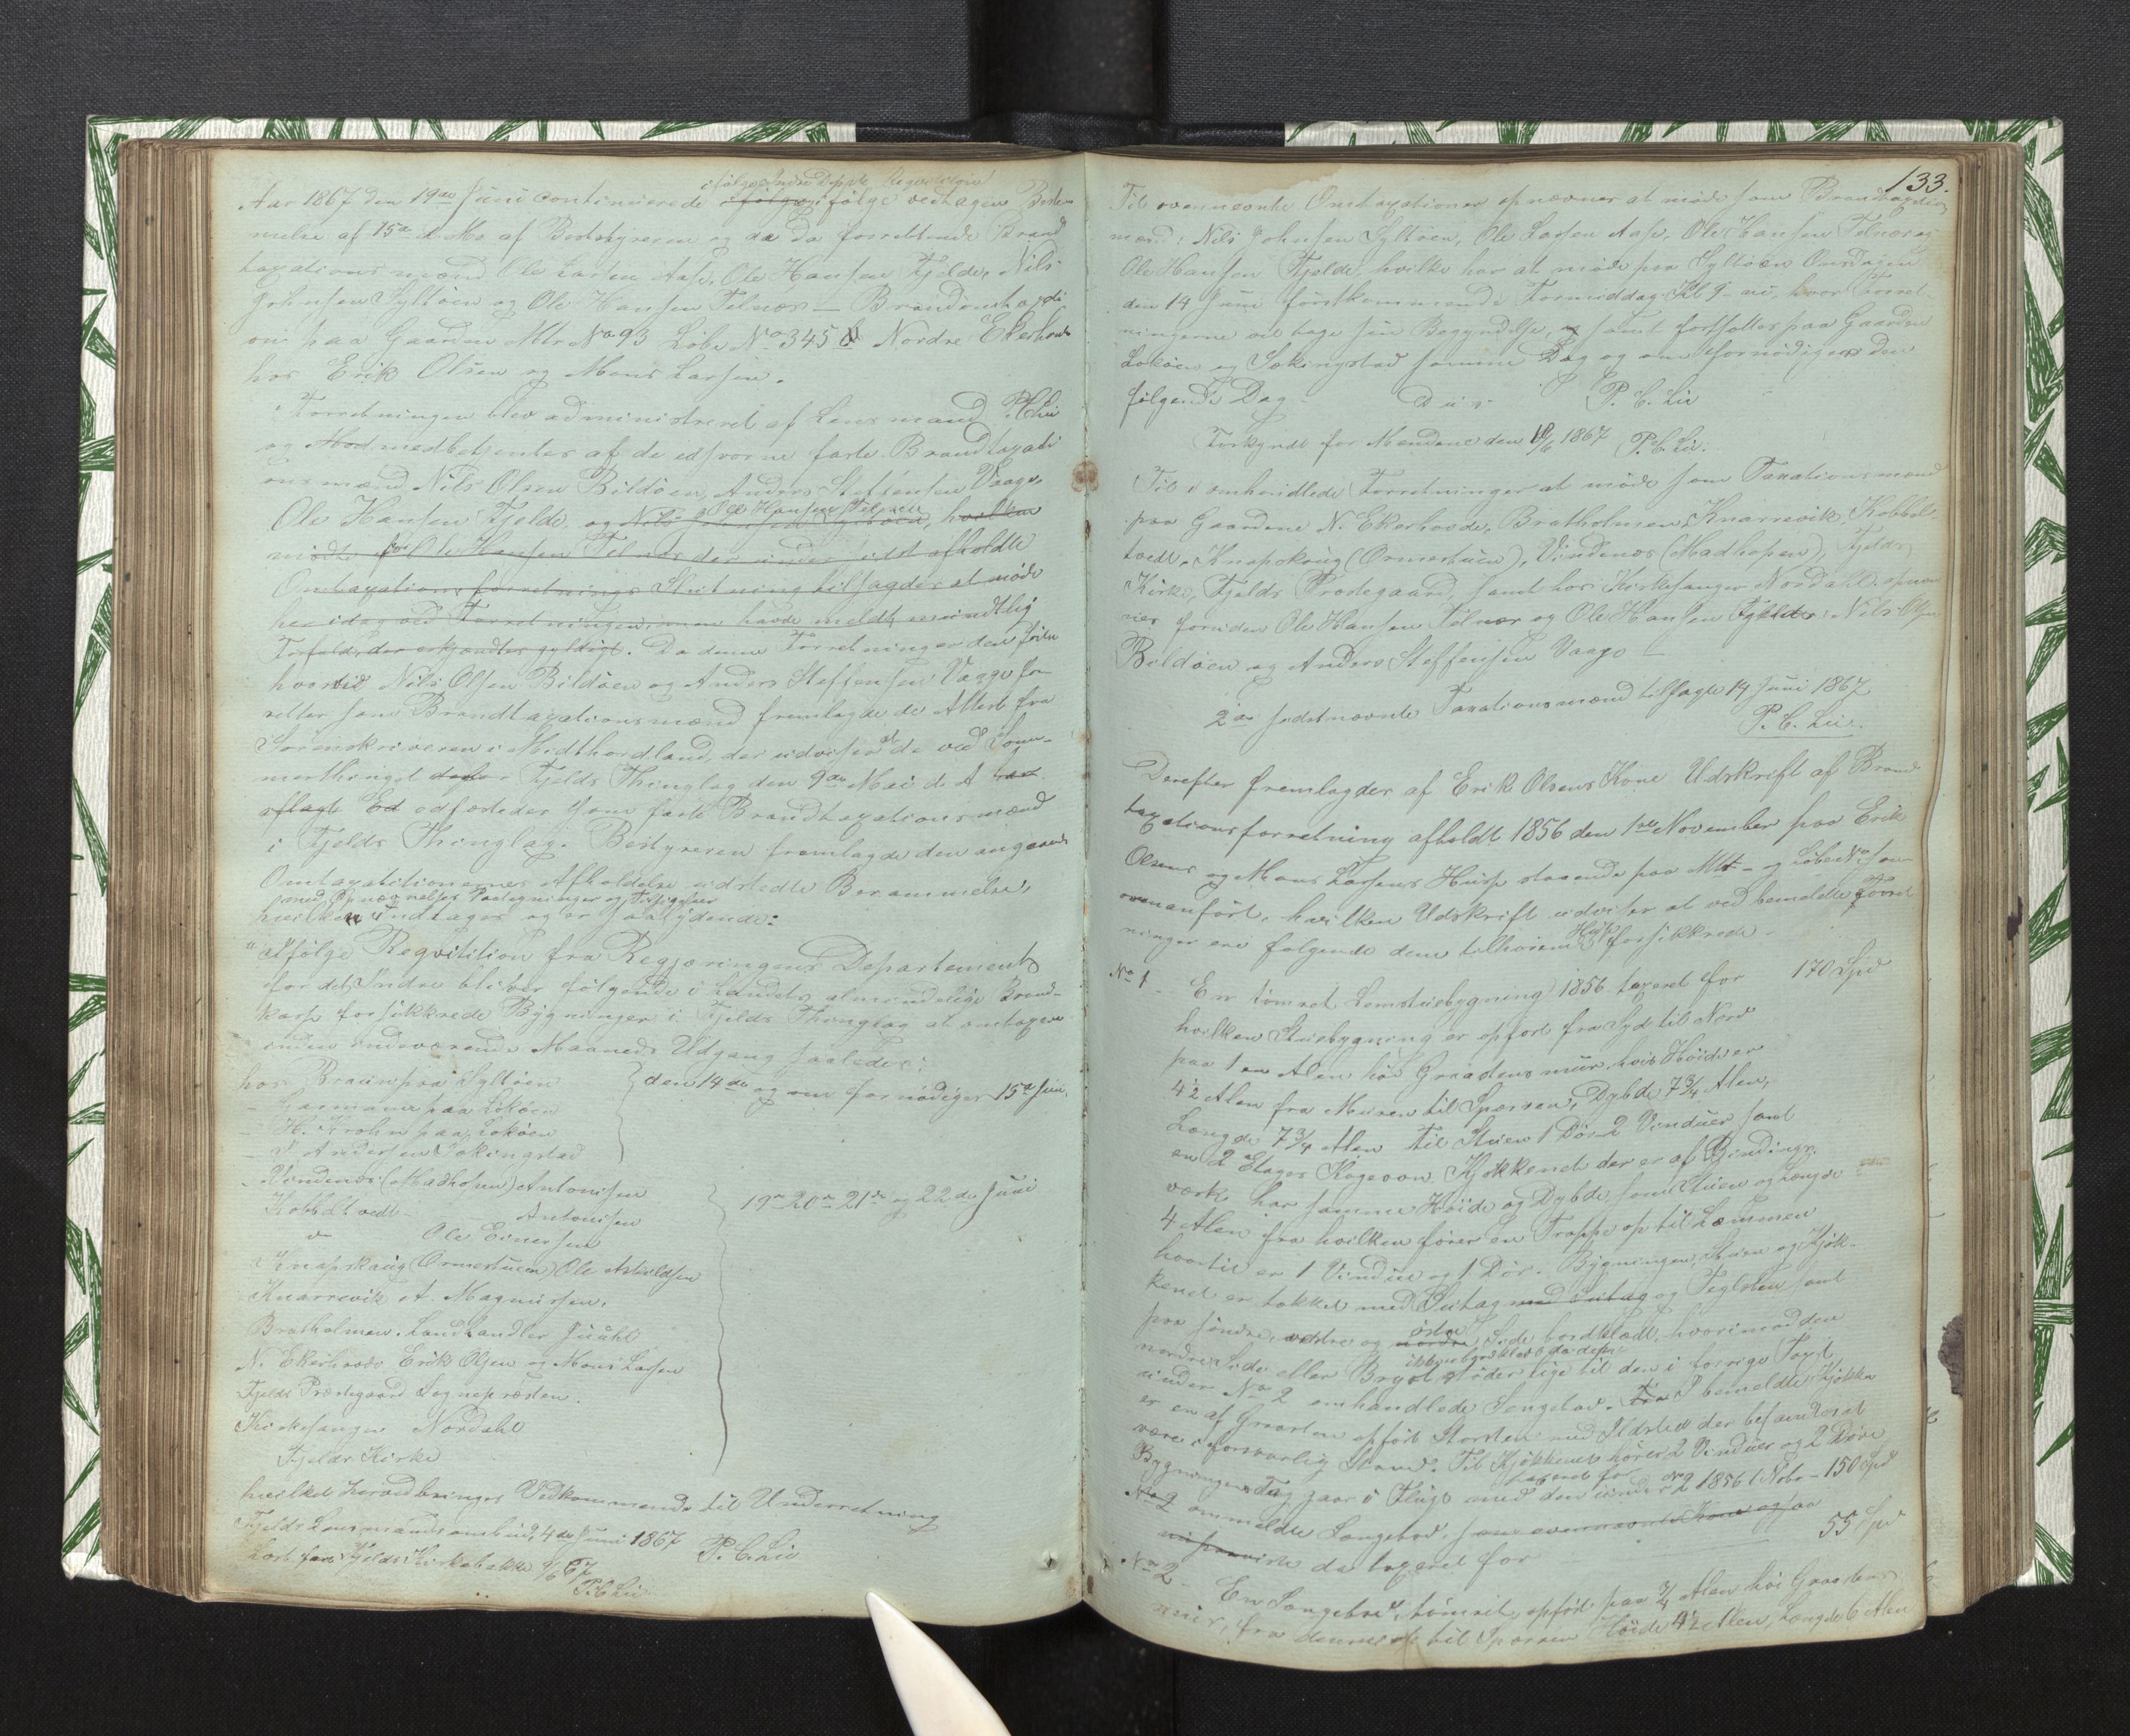 i følge Indre Depts Reqvisition
Aar 1867 den 19de Juni continuerede i følge i følge vedtagen Bestem
melse af 15de d. M. af Bestyreren og de da forrettende Brand
taxationsmænd Ole Larsen Aase, Ole Hansen Fjelde, Nils
Johnsen Syltöen og Ole Hansen Telnæs — Brandomtaxati
on paa Gaarden Mtr No 93 Löbe No 345 b Nordre Ekerhovd
hos Erik Olsen og Mons Larsen.
Forretningen blev administreret af Lensmand P. C. Lie
og Med medbetjentes af de edsvorne faste Brandtaxati
onsmænd Nils Olsen Bildöen, Anders Steffensen Vaage,
Ole Hansen Telnæs
Ole Hansen Fjelde og Nils Johnsen Syltöen, hvilken
mödte for Ole Hansen Telnæs der under sidst afholdte
Omtaxationsforretnings Slutning tilsagdes at møde
her idag ved Forretningen, men havde meldt mundtlig
Forfald, der erkjendtes gyldigt. Da denne Forretning er den förste
hvortil Nils Olsen Bildöen og Anders Steffensen Vaage for
retter som Brandtaxationsmænd fremlagdes de Attest fra
Sorenskriveren i Midthordland, der udviser at de ved Som-
merthinget defor Fjelds Thinglag den 9de Mai d. A. har
aflagt Ed edfæstedes som faste Brandtaxationsmænd
i Fjelds Thinglag. Bestyreren fremlagde den angaaende
Omtaxationernes Afholdelse udstedte Berammelse,
med Opnævnelser Paategninger og Tilsigelser
hvilken indtages og er saalydende:
"Ifølge Reqvisition fra Regjeringens Departement
for det Indre bliver følgende i Landets almindelige Brand-
kasse forsikkrede Bygninger i Fjelds Thinglag at omtaxere
inden indeværende Maaneds Udgang saaledes:
hos Braun paa Syltöen } den 14de og om fornödiges 15de Juni,
- Garmann paa Loköen
- H. Krohn paa Loköen
- Andersen Sækingstad
- Vindenæs (Madhopen) Antonisen } 19de 20de 21de og 22de Juni
Kobbeltvedt - Antonisen
do Ole Einersen
Knapskaug (Ormestuen) Ole Askildsen
Knarrevik A. Magnusen.
Bratholmen. Landhandler Juuhl
N. Ekerhovd Erik Olsen og Mons Larsen
Fjelds Præstegaard Sognepræsten.
Kirkesanger Nordahl
Fjelds Kirke
hvilket herved bringes Vedkommende til Underretning
Fjelds Lensmandsombud, 4de Juni 1867 P. C. Lie
Læst foran Fjelds Kirkebakke 9/6 67
P. C. Lie
133.
Til ovennævnte Omtaxationer opnævnes at møde som Brandtaxations
mænd: Nils Johnsen Syltöen, Ole Larsen Aase, Ole Hansen Telnæs og
Ole Hansen Fjelde, hvilke har at møde paa Syltöen Onsdagen
den 14 Juni förstkommende Formiddag Kl 9 - ni, hvor Forret
ningerne vil tage sin Begyndelse, og samt fortsættes paa Gaarden
Loköen og Sækingstad samme Dag og om fornödiges den
følgende Dag. D. u. s. P. C. Lie
Forkyndt for Mændene den 10/6 1867 P. C. Lie.
Til i omhandlede Forretninger at møde som Taxationsmænd
paa Gaardene N. Ekerhovde, Bratholmen, Knarrevik, Kobbel-
tvedt, Knapskaug (Ormestuen), Vindenæs (Madhopen), Fjelds
Kirke, Fjelds Præstegaard, samt hos Kirkesanger Nordahl, opnæv
nes foruden Ole Hansen Telnæs og Ole Hansen Fjelde: Nils Olsen
Bildöen og Anders Steffensen Vaage —
2de sidstnævnte Taxationsmænd tilsagte 14 Juni 1867
P. C. Lie.
Derefter fremlagdes af Erik Olsens Kone Udskrift af Brand
taxationsforretning afholdt 1856 den 1ste November paa Erik
Olsens og Mons Larsens Huse staaende paa Mtr - og Löbe No som
ovenanfört, hvilken Udskrift udviser at ved bemeldte Forret
ninger ere følgende dem tilhørende Huse forsikkrede -
No 1 - En tömret Lemstuebygning 1856 taxeret for 170 Spd
hvilken Stuebygning er opfört fra Syd til Nord
paa 1 en Alen höi Graastensmuur, hvis Höide er
4½ Alen fra Muren til Sparren, Dybde 7¾ Alen,
Længde 7¾ Alen. Til Stuen 1 Dör - 2 Vinduer samt
en 2 Etages Kogeovn. Kjøkkenet der er af Bindings-
værk har samme Höide og Dybde som Stuen og Længde
4 Alen fra hvilken fører en Trappe op til Lemmen
hvortil er 1 Vindue og 1 Dör. Bygningen, Stuen og Kjök-
kenet er tækket med Suetag med Suetag og Teglsten samt
paa söndre, vestre og nordre östre Side bordklædt, hvorimod den
ikke er bordklædt da den
nordre Side eller Bryst stöder lige til den i forrige Taxt
under No 2 omhandlede Sengebod. Fra I bemeldte Kjökken
er en af Graasten opfört Skorsten med Ildsted der befandtes at
være i forsvarlig Stand. Til Kjøkkenet hører 2 Vinduer og 2 Döre
Bygningens Tag gaar i Flugt med den under No 2 1856 taxeret for Nebo - 150 Spd
No 2 ommeldte Sengebod. som ovennævnte Kone ogsaa
os paaviste da taxeret for 55 Spd
No 2 - En Sengebod, tömret, opfört paa ¾ Alen höi Graastens
muur, fra denne op til Sparren Höide 4½ Alen, Længde 6 Alen